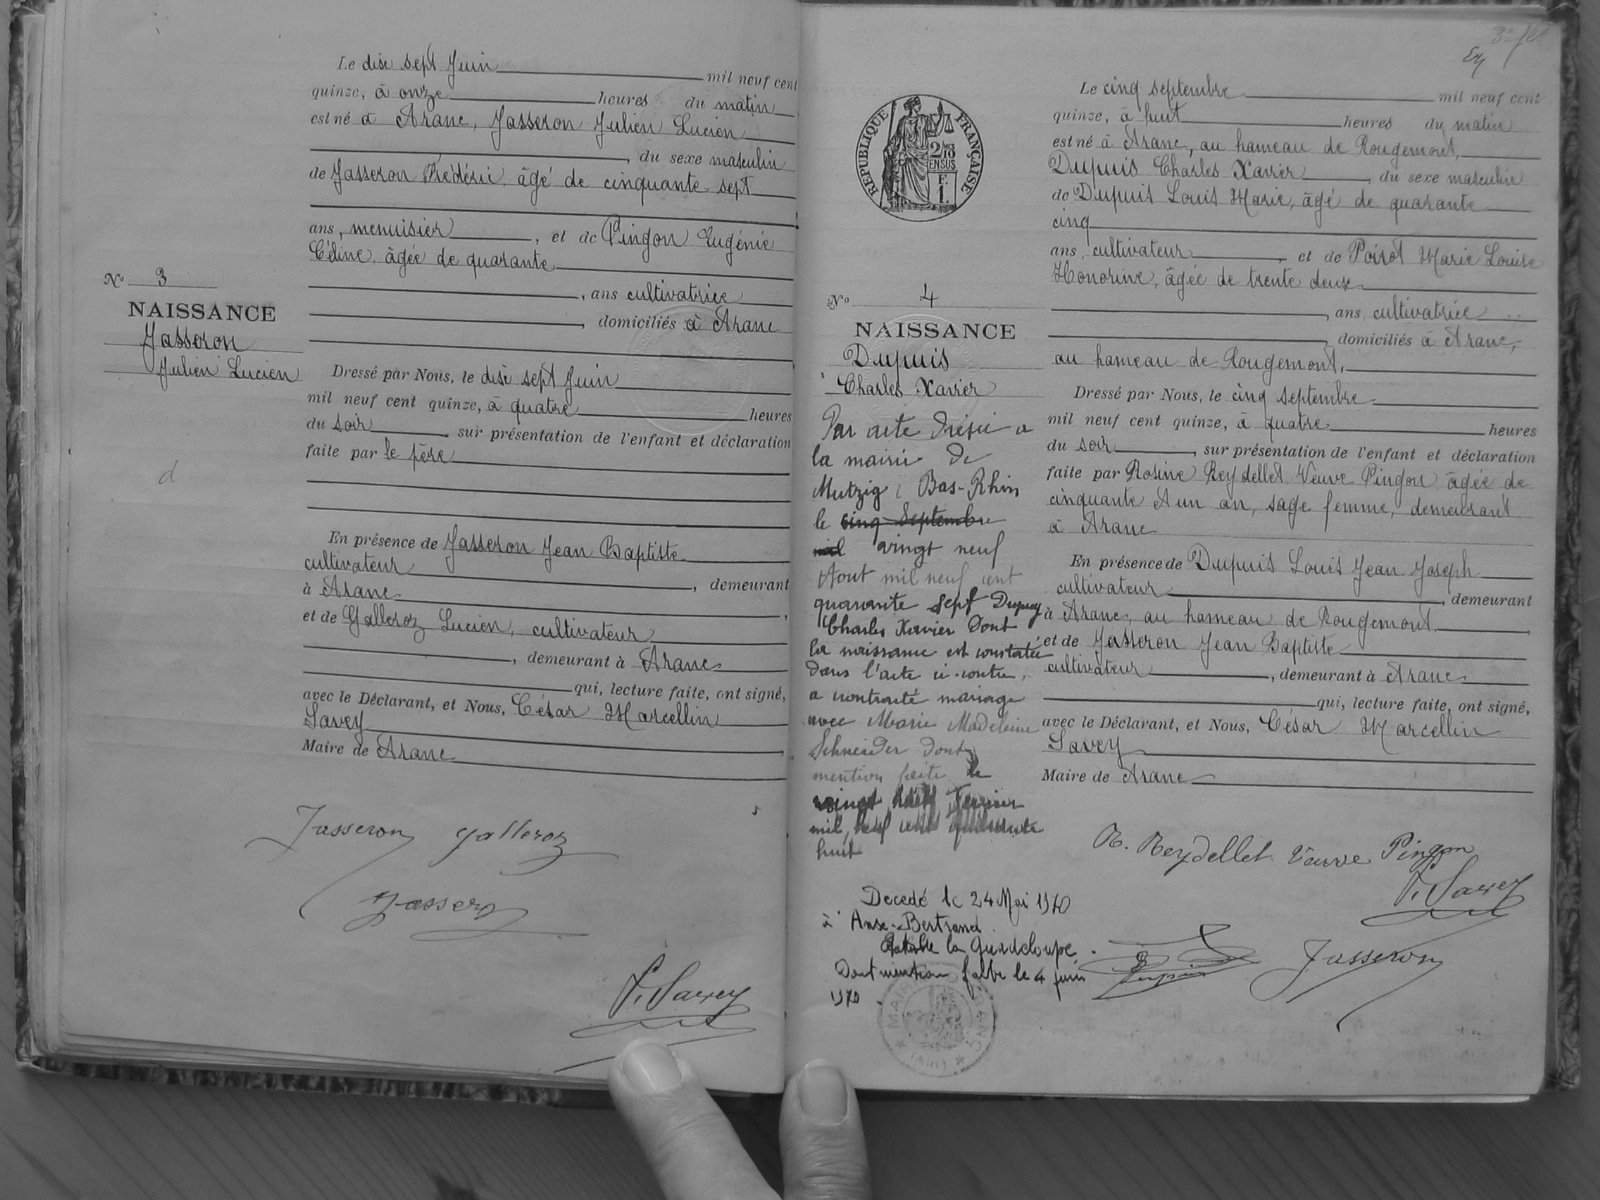 Le dix sept Juin mil neuf cent
quinze, à onze heures du matin
est né à Aranc, Jasseron Julien Lucien
, du sexe masculin
de Jasseron Frédéric, âgé de cinquante sept
ans, menuisier, et de Pingon Eugénie
Céline, âgée de quarante
, ans cultivatrice
, domiciliés à Aranc
N° 3
NAISSANCE
Jasseron
Julien Lucien
Dressé par Nous, le dix sept Juin
mil neuf cent quinze, à quatre heures
du soir, sur présentation de l'enfant et déclaration
faite par le père
d
En présence de Jasseron Jean Baptiste
cultivateur, demeurant
à Aranc,
et de Galleroz Lucien, cultivateur
, demeurant à Aranc
qui, lecture faite, ont signé,
avec le Déclarant, et Nous, César Marcellin
Savey,
Maire de Aranc
Jasseron Galleroz
Jasseron
C. Savey
Le cinq septembre mil neuf cent
quinze, à huit heures du matin
est né à Aranc, au hameau de Rougemont,
Dupuis Charles Xavier, du sexe masculin
de Dupuis Louis Marie, âgé de quarante
cinq
ans, cultivateur, et de Poirot Marie Louise
Honorine, âgée de trente deux
, ans, cultivatrice
, domiciliés à Aranc,
au hameau de Rougemont,
RÉPUBLIQUE FRANÇAISE
2/10
EN SUS
N° 4
NAISSANCE
Dupuis
Charles Xavier
Dressé par Nous, le cinq septembre
mil neuf cent quinze, à quatre heures
du soir, sur présentation de l'enfant et déclaration
faite par Rosine Reydellet Veuve Pingon âgée de
cinquante et un an, sage femme, demeurant
à Aranc
En présence de Dupuis Louis Jean Joseph
cultivateur, demeurant
à Aranc, au hameau de Rougemont,
et de Jasseron Jean Baptiste
cultivateur, demeurant à Aranc
qui, lecture faite, ont signé,
avec le Déclarant, et Nous, César Marcellin
Savey
Maire de Aranc
Par acte dressé a
la mairie de
Mutzig, Bas-Rhin
le cinq Septembre
mil vingt neuf
Aout mil neuf cent
quarante sept Dupuy
Charles Xavier dont
la naissance est constatée
dans l'acte ci-contre,
a contracté mariage
avec Marie Madeleine
Schneider dont
mention faite le
vingt Février
mil, neuf cent quarante
huit
Decedé le 24 Mai 1970
à Anse-Bertrand
la Guadeloupe.
Dont mention faite le 4 juin
1970
R. Reydellet Veuve Pingon
C. Savey
Dupuis
Jasseron